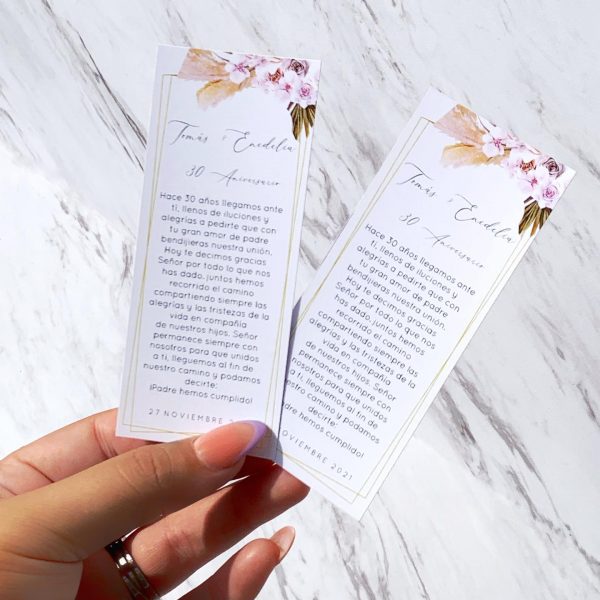 Tomás & Enedelia
30 Aniversario
Hace 30 años llegamos ante
ti, llenos de iluciones y
alegrías a pedirte que con
tu gran amor de padre
bendijieras nuestra unión,
Hoy te decimos gracias
Señor por todo lo que nos
has dado, juntos hemos
recorrido el camino
compartiendo siempre las
alegrías y las tristezas de la
vida en compañía
de nuestros hijos. Señor
permanece siempre con
nosotros para que unidos
a ti, lleguemos al fin de
nuestro camino y podamos
decirte:
¡Padre hemos cumplido!
27 NOVIEMBRE
Tomás & Enedelia
30 Aniversario
Hace 30 años llegamos ante
ti, llenos de iluciones y
alegrías a pedirte que con
tu gran amor de padre
bendijieras nuestra unión,
Hoy te decimos gracias
Señor por todo lo que nos
has dado, juntos hemos
recorrido el camino
compartiendo siempre las
alegrías y las tristezas de la
vida en compañía
de nuestros hijos. Señor
permanece siempre con
nosotros para que unidos
a ti, lleguemos al fin de
nuestro camino y podamos
decirte:
¡Padre hemos cumplido!
NOVIEMBRE 2021